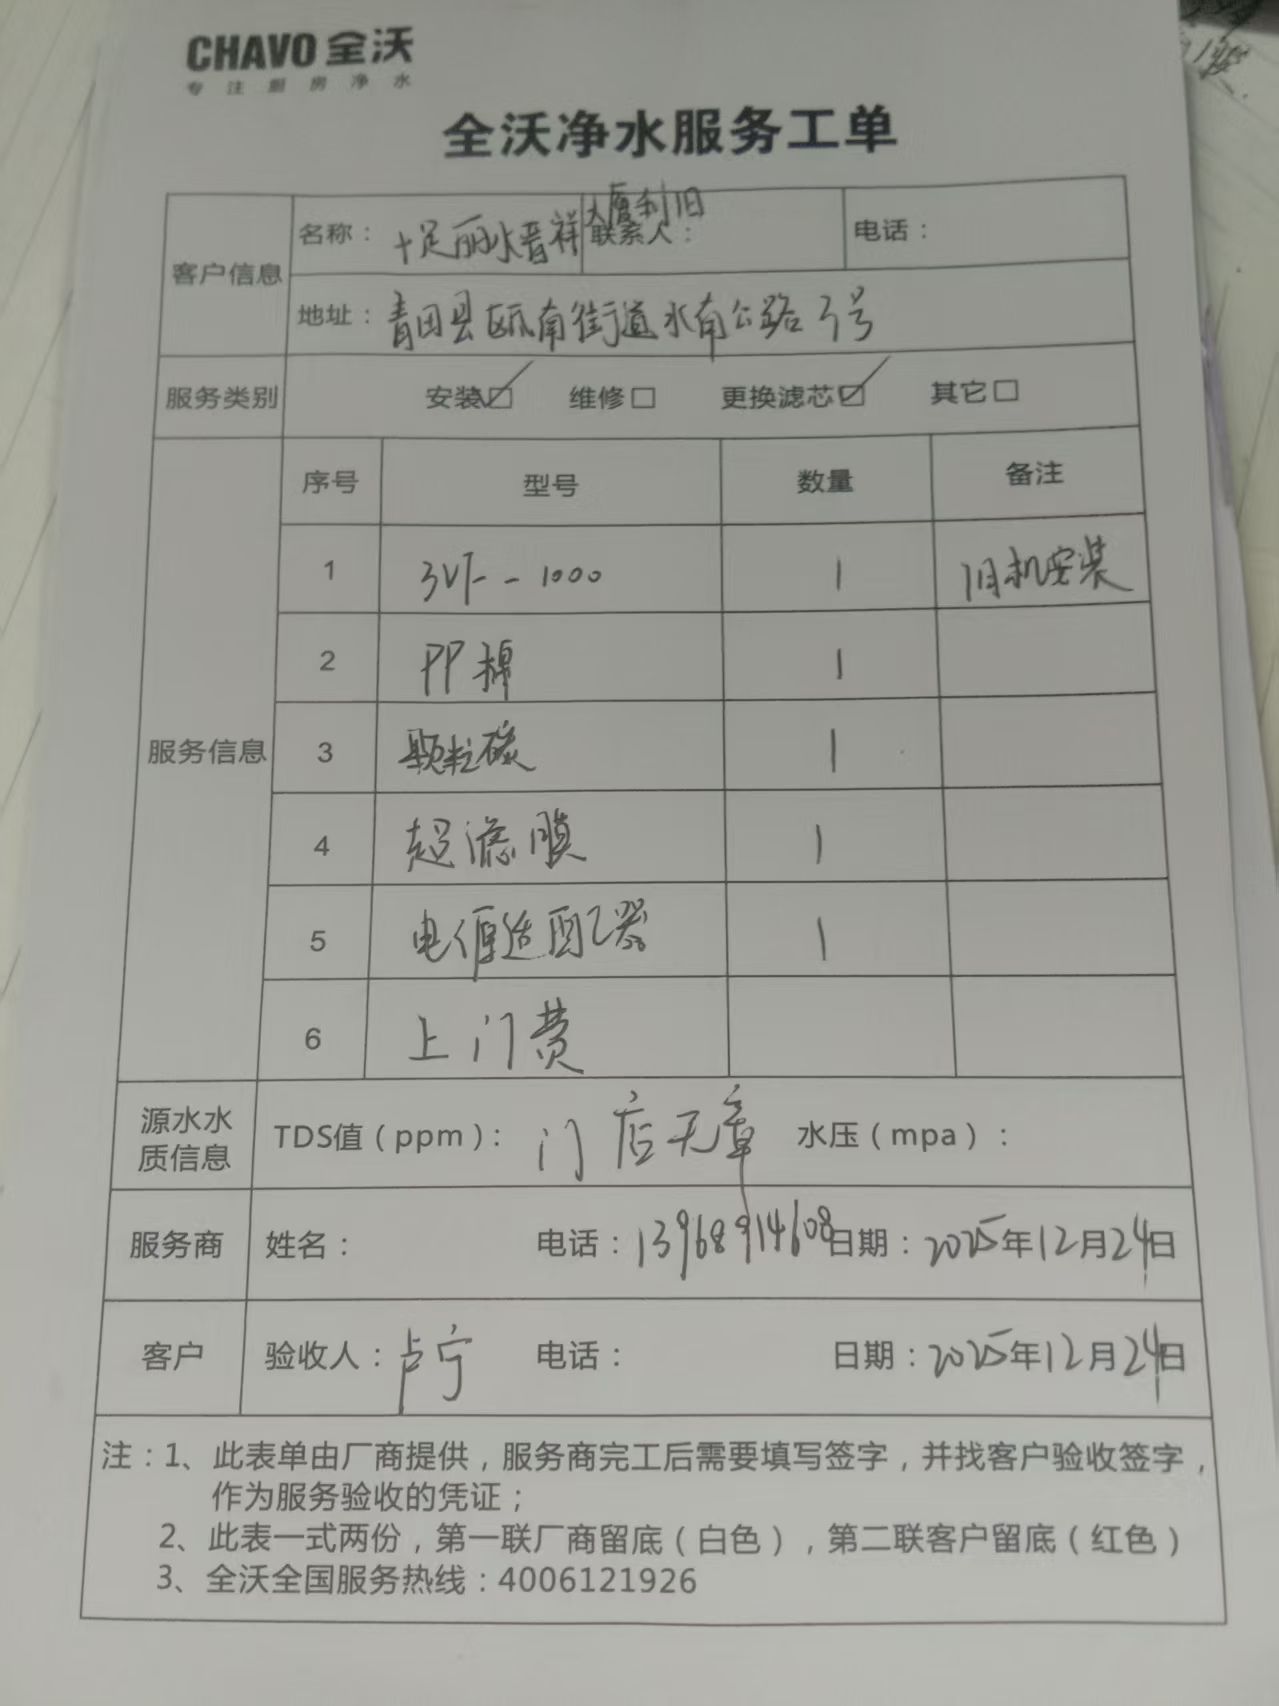 CHAVO 全沃
专注厨房净水
全沃净水服务工单
客户信息
名称：十足丽水晋祥大厦利旧
联系人：
电话：
地址：青田县瓯南街道水南公路7号
服务类别
安装☑ 维修□ 更换滤芯☑ 其它□
服务信息
序号 型号 数量 备注
1 3VF--1000 1 旧机安装
2 PP棉 1
3 颗粒碳 1
4 超滤膜 1
5 电源适配器 1
6 上门费
源水水质信息
TDS值（ppm）： 门店无章 水压（mpa）：
服务商 姓名： 电话：13968914608 日期：2025年12月24日
客户 验收人：卢宁 电话： 日期：2025年12月24日
注：1、此表单由厂商提供，服务商完工后需要填写签字，并找客户验收签字，
作为服务验收的凭证；
2、此表一式两份，第一联厂商留底（白色），第二联客户留底（红色）
3、全沃全国服务热线：4006121926